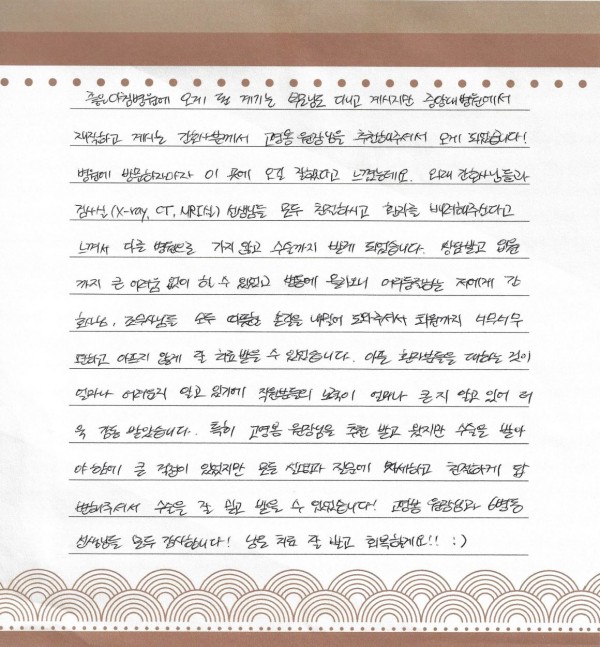 좋은아침병원에 오게 된 계기는 부모님도 다니고 계시지만 중앙대병원에서
재직하고 계시는 간호사분께서 고영봉 원장님을 추천해주셔서 오게 되었습니다!
병원에 방문하자마자 이 곳에 오길 잘했다고 느꼈는데요. 외래 간호사님들과
검사실(X-ray, CT, MRI실) 선생님들 모두 친절하시고 환자를 배려해주신다고
느껴서 다른 병원으로 가지 않고 수술까지 받게 되었습니다. 상담받고 입원
까지 큰 어려움 없이 할 수 있었고 병동에 올라오니 어리둥절하는 저에게 간
호사님, 조무사님들 모두 따뜻한 손길을 내밀어 도와주셔서 회복까지 너무너무
편하고 아프지 않게 잘 치료받을 수 있었습니다. 아픈 환자분들을 대하는 것이
얼마나 어려운지 알고 있기에 직원분들의 노력이 얼마나 큰지 알고 있어 더
욱 감동 받았습니다. 특히 고영봉 원장님을 추천 받고 왔지만 수술을 받아
야 함에 큰 걱정이 있었지만 모든 질문에 자세하고 친절하게 답
변해주셔서 수술을 잘 믿고 받을 수 있었습니다! 고영봉 원장님과 6병동
선생님들 모두 감사합니다! 남은 치료 잘 받고 회복할게요!! :)